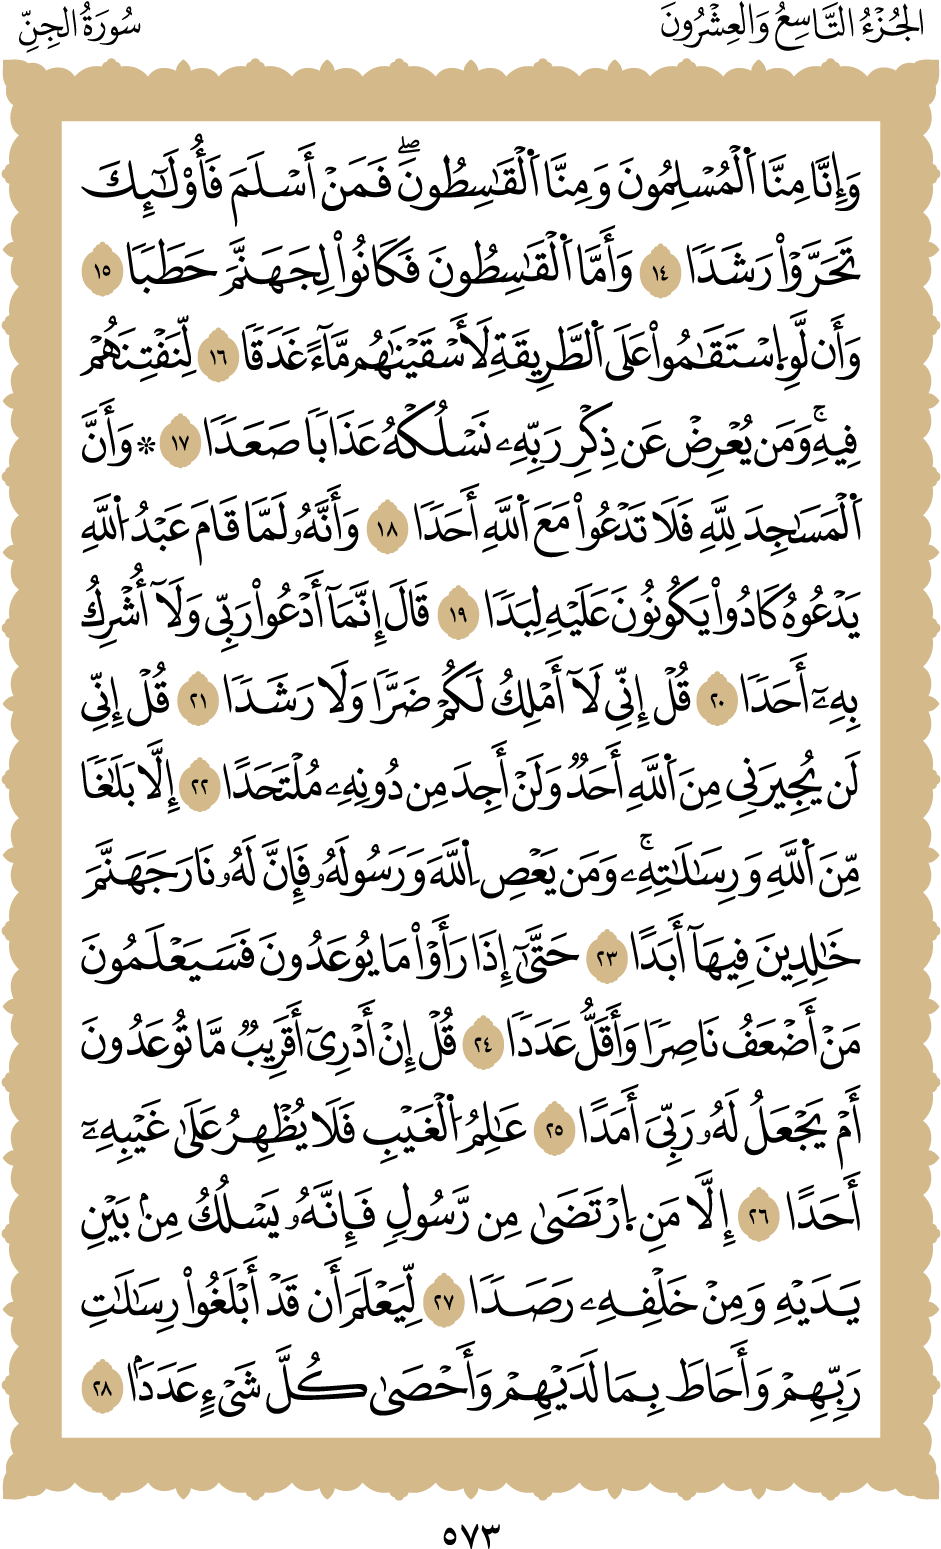 الجُزْءُ التَّاسِعُ وَالعِشْرُونَ
سُورَةُ الجِنِّ
وَإِنَّا مِنَّا ٱلۡمُسۡلِمُونَ وَمِنَّا ٱلۡقَٰسِطُونَۖ فَمَنۡ أَسۡلَمَ فَأُوْلَٰٓئِكَ
تَحَرَّوۡاْ رَشَدٗا ١٤ وَأَمَّا ٱلۡقَٰسِطُونَ فَكَانُواْ لِجَهَنَّمَ حَطَبٗا ١٥
وَأَن لَّوِ ٱسۡتَقَٰمُواْ عَلَى ٱلطَّرِيقَةِ لَأَسۡقَيۡنَٰهُم مَّآءً غَدَقٗا ١٦ لِّنَفۡتِنَهُمۡ
فِيهِۚ وَمَن يُعۡرِضۡ عَن ذِكۡرِ رَبِّهِۦ نَسۡلُكۡهُ عَذَابٗا صَعَدٗا ١٧ * وَأَنَّ
ٱلۡمَسَٰجِدَ لِلَّهِ فَلَا تَدۡعُواْ مَعَ ٱللَّهِ أَحَدٗا ١٨ وَأَنَّهُۥ لَمَّا قَامَ عَبۡدُ ٱللَّهِ
يَدۡعُوهُ كَادُواْ يَكُونُونَ عَلَيۡهِ لِبَدٗا ١٩ قَالَ إِنَّمَآ أَدۡعُواْ رَبِّي وَلَآ أُشۡرِكُ
بِهِۦٓ أَحَدٗا ٢٠ قُلۡ إِنِّي لَآ أَمۡلِكُ لَكُمۡ ضَرّٗا وَلَا رَشَدٗا ٢١ قُلۡ إِنِّي
لَن يُجِيرَنِي مِنَ ٱللَّهِ أَحَدٞ وَلَنۡ أَجِدَ مِن دُونِهِۦ مُلۡتَحَدًا ٢٢ إِلَّا بَلَٰغٗا
مِّنَ ٱللَّهِ وَرِسَٰلَٰتِهِۦۚ وَمَن يَعۡصِ ٱللَّهَ وَرَسُولَهُۥ فَإِنَّ لَهُۥ نَارَ جَهَنَّمَ
خَٰلِدِينَ فِيهَآ أَبَدًا ٢٣ حَتَّىٰٓ إِذَا رَأَوۡاْ مَا يُوعَدُونَ فَسَيَعۡلَمُونَ
مَنۡ أَضۡعَفُ نَاصِرٗا وَأَقَلُّ عَدَدٗا ٢٤ قُلۡ إِنۡ أَدۡرِيٓ أَقَرِيبٞ مَّا تُوعَدُونَ
أَمۡ يَجۡعَلُ لَهُۥ رَبِّيٓ أَمَدًا ٢٥ عَٰلِمُ ٱلۡغَيۡبِ فَلَا يُظۡهِرُ عَلَىٰ غَيۡبِهِۦٓ
أَحَدًا ٢٦ إِلَّا مَنِ ٱرۡتَضَىٰ مِن رَّسُولٖ فَإِنَّهُۥ يَسۡلُكُ مِنۢ بَيۡنِ
يَدَيۡهِ وَمِنۡ خَلۡفِهِۦ رَصَدٗا ٢٧ لِّيَعۡلَمَ أَن قَدۡ أَبۡلَغُواْ رِسَٰلَٰتِ
رَبِّهِمۡ وَأَحَاطَ بِمَا لَدَيۡهِمۡ وَأَحۡصَىٰ كُلَّ شَيۡءٍ عَدَدَۢا ٢٨
٥٧٣